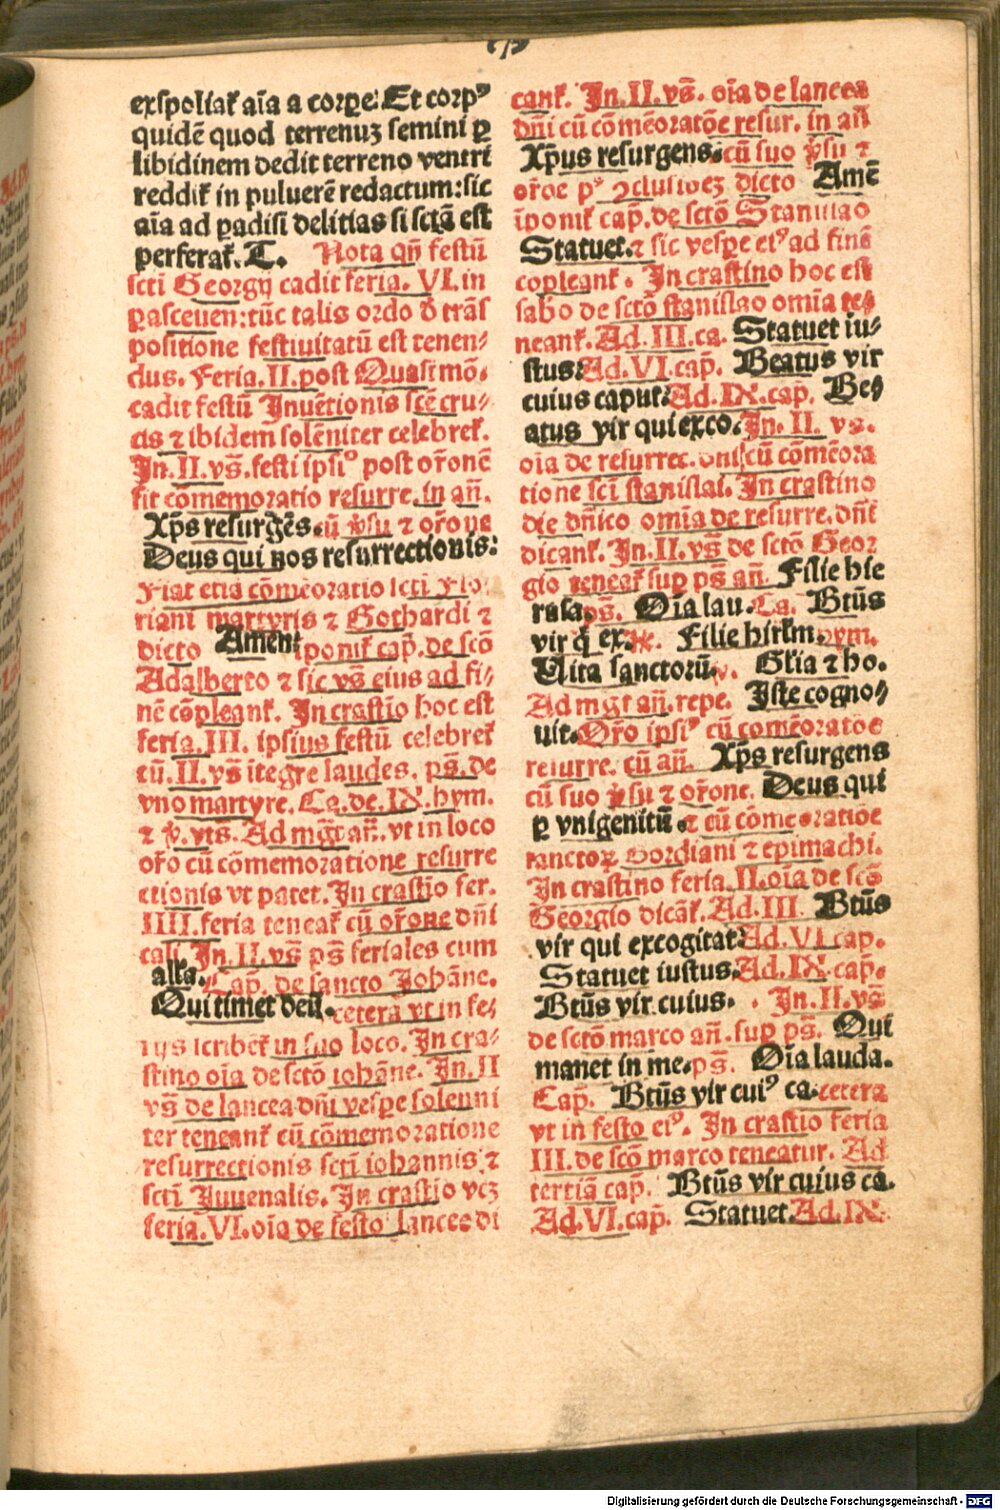 exspoliat᷒ aīa a corꝑe: Et corpꝰ
quidē quod terrenuʒ semini ꝑ
libidinem dedit terreno ventri
reddit᷒ in puluerē redactum: sic
aīa ad ꝑadisi delitias si sctā est
perferat᷒. T. Nota qn̄ festū
scti Georgij cadit feria. VI. in
ꝑasceuen: tūc talis ordo d̄ trās
positione festiuitatū est tenen⸗
dus. Feria. II. post Quasimō.
cadit festū Inuētionis sce cru⸗
cis ⁊ ibidem solēniter celebret᷒.
In. II. vs̄. festi ipsiꝰ post or̄onē
fit cōmemoratio resurre. in an̄.
Xp̄s resurgēs. cū ꝟsu ⁊ or̄one
Deus qui nos resurrectionis:
Fiat etiā cōmēoratio scti Flo
riani martyris ⁊ Gothardi ⁊
dicto Amen: īponit᷒ cap̄. de scō
Adalberto ⁊ sic vs̄ eius ad fi⸗
nē cōpleant᷒. In crastīo hoc est
feria. III. ipsius festū celebret᷒
cū. II. vs̄ ītegre laudes. ps̄. de
vno martyre. Ca. de. IX. hym.
⁊ ꝟ. vts̄. Ad mgt̄ an̄. vt in loco
or̄o cū cōmemoratione resurre
ctionis vt patet. In crastīo fer.
IIII. feria teneat᷒ cū or̄one dn̄i
cali In. II. vs̄ ps̄ feriales cum
alla. Cap̄. de sancto Johāne.
Qui timet deū. cetera vt in fe⸗
rijs scribet᷒ in suo loco. In cra⸗
stino oīa de sctō iohāne. In. II
vs̄ de lancea dn̄i vesꝑe solenni
ter teneant᷒ cū cōmemoratione
resurrectionis scti iohannis ⁊
scti Juuenalis. In crastīo vcʒ
feria. VI. oīa de festo lancee di
cant᷒. In. II. vs̄. oīa de lancea
dn̄i cū cōmēoratōe resur. in an̄
Xp̄us resurgens. cū suo ꝟsu ⁊
or̄oe pꝰ ꝯclusiōeʒ dicto Amē
īponit᷒ cap̄. de sctō Stanislao
Statuet. ⁊ sic vesꝑe eiꝰ ad finē
cōpleant᷒. In crastino hoc est
sabo de sctō stanislao omīa te⸗
neant᷒. Ad. III. ca. Statuet iu⸗
stus: Ad. VI. cap̄. Beatus vir
cuius caput: Ad. IX. cap̄. Be⸗
atus vir qui exco. In. II. vs.
oīa de resurrec. dn̄i cū cōmēora
tione sci stanislai. In crastino
die dn̄ico omīa de resurre. dn̄i
dicant᷒. In. II. vs̄ de sctō Geor
gio teneat᷒ sup ps̄ an̄. Filie hie
rusa. ps̄. Oīa lau. Ca. Btūs
vir q̄ ex. ℟. Filie hirlm. hym.
Uita sanctorū. v. Glīa ⁊ ho.
Ad mgt an̄. repe. Iste cogno⸗
uit. Or̄o ipsiꝰ cū comēoratoe
resurre. cū an̄. Xp̄s resurgens
cū suo ꝟsu ⁊ or̄one. Deus qui
ꝑ vnigenitū. ⁊ cū cōmeoratioe
sanctoꝝ Gordiani ⁊ epimachi.
In crastino feria. II. oīa de scō
Georgio dicāt᷒. Ad. III. Btūs
vir qui excogitat: Ad. VI. cap.
Statuet iustus. Ad. IX. cap̄.
Btūs vir cuius. In. II. vs̄
de sctō marco an̄. sup ps̄. Qui
manet in me. ps̄. Oīa lauda.
Cap̄. Btūs vir cuiꝰ ca. cetera
vt in festo eiꝰ. In crastīo feria
III. de scō marco teneatur. Ad
tertiā cap̄. Btūs vir cuius ca.
Ad. VI. cap̄. Statuet. Ad. IX.
Digitalisierung gefördert durch die Deutsche Forschungsgemeinschaft - DFG